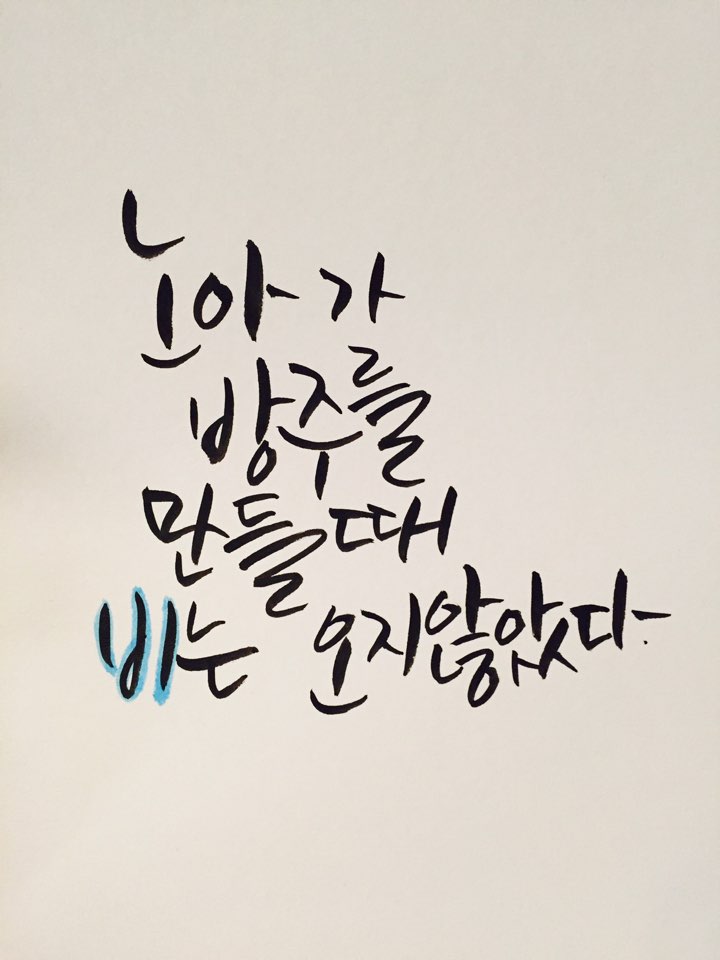 노아가
방주를
만들때
비는 오지않았다.